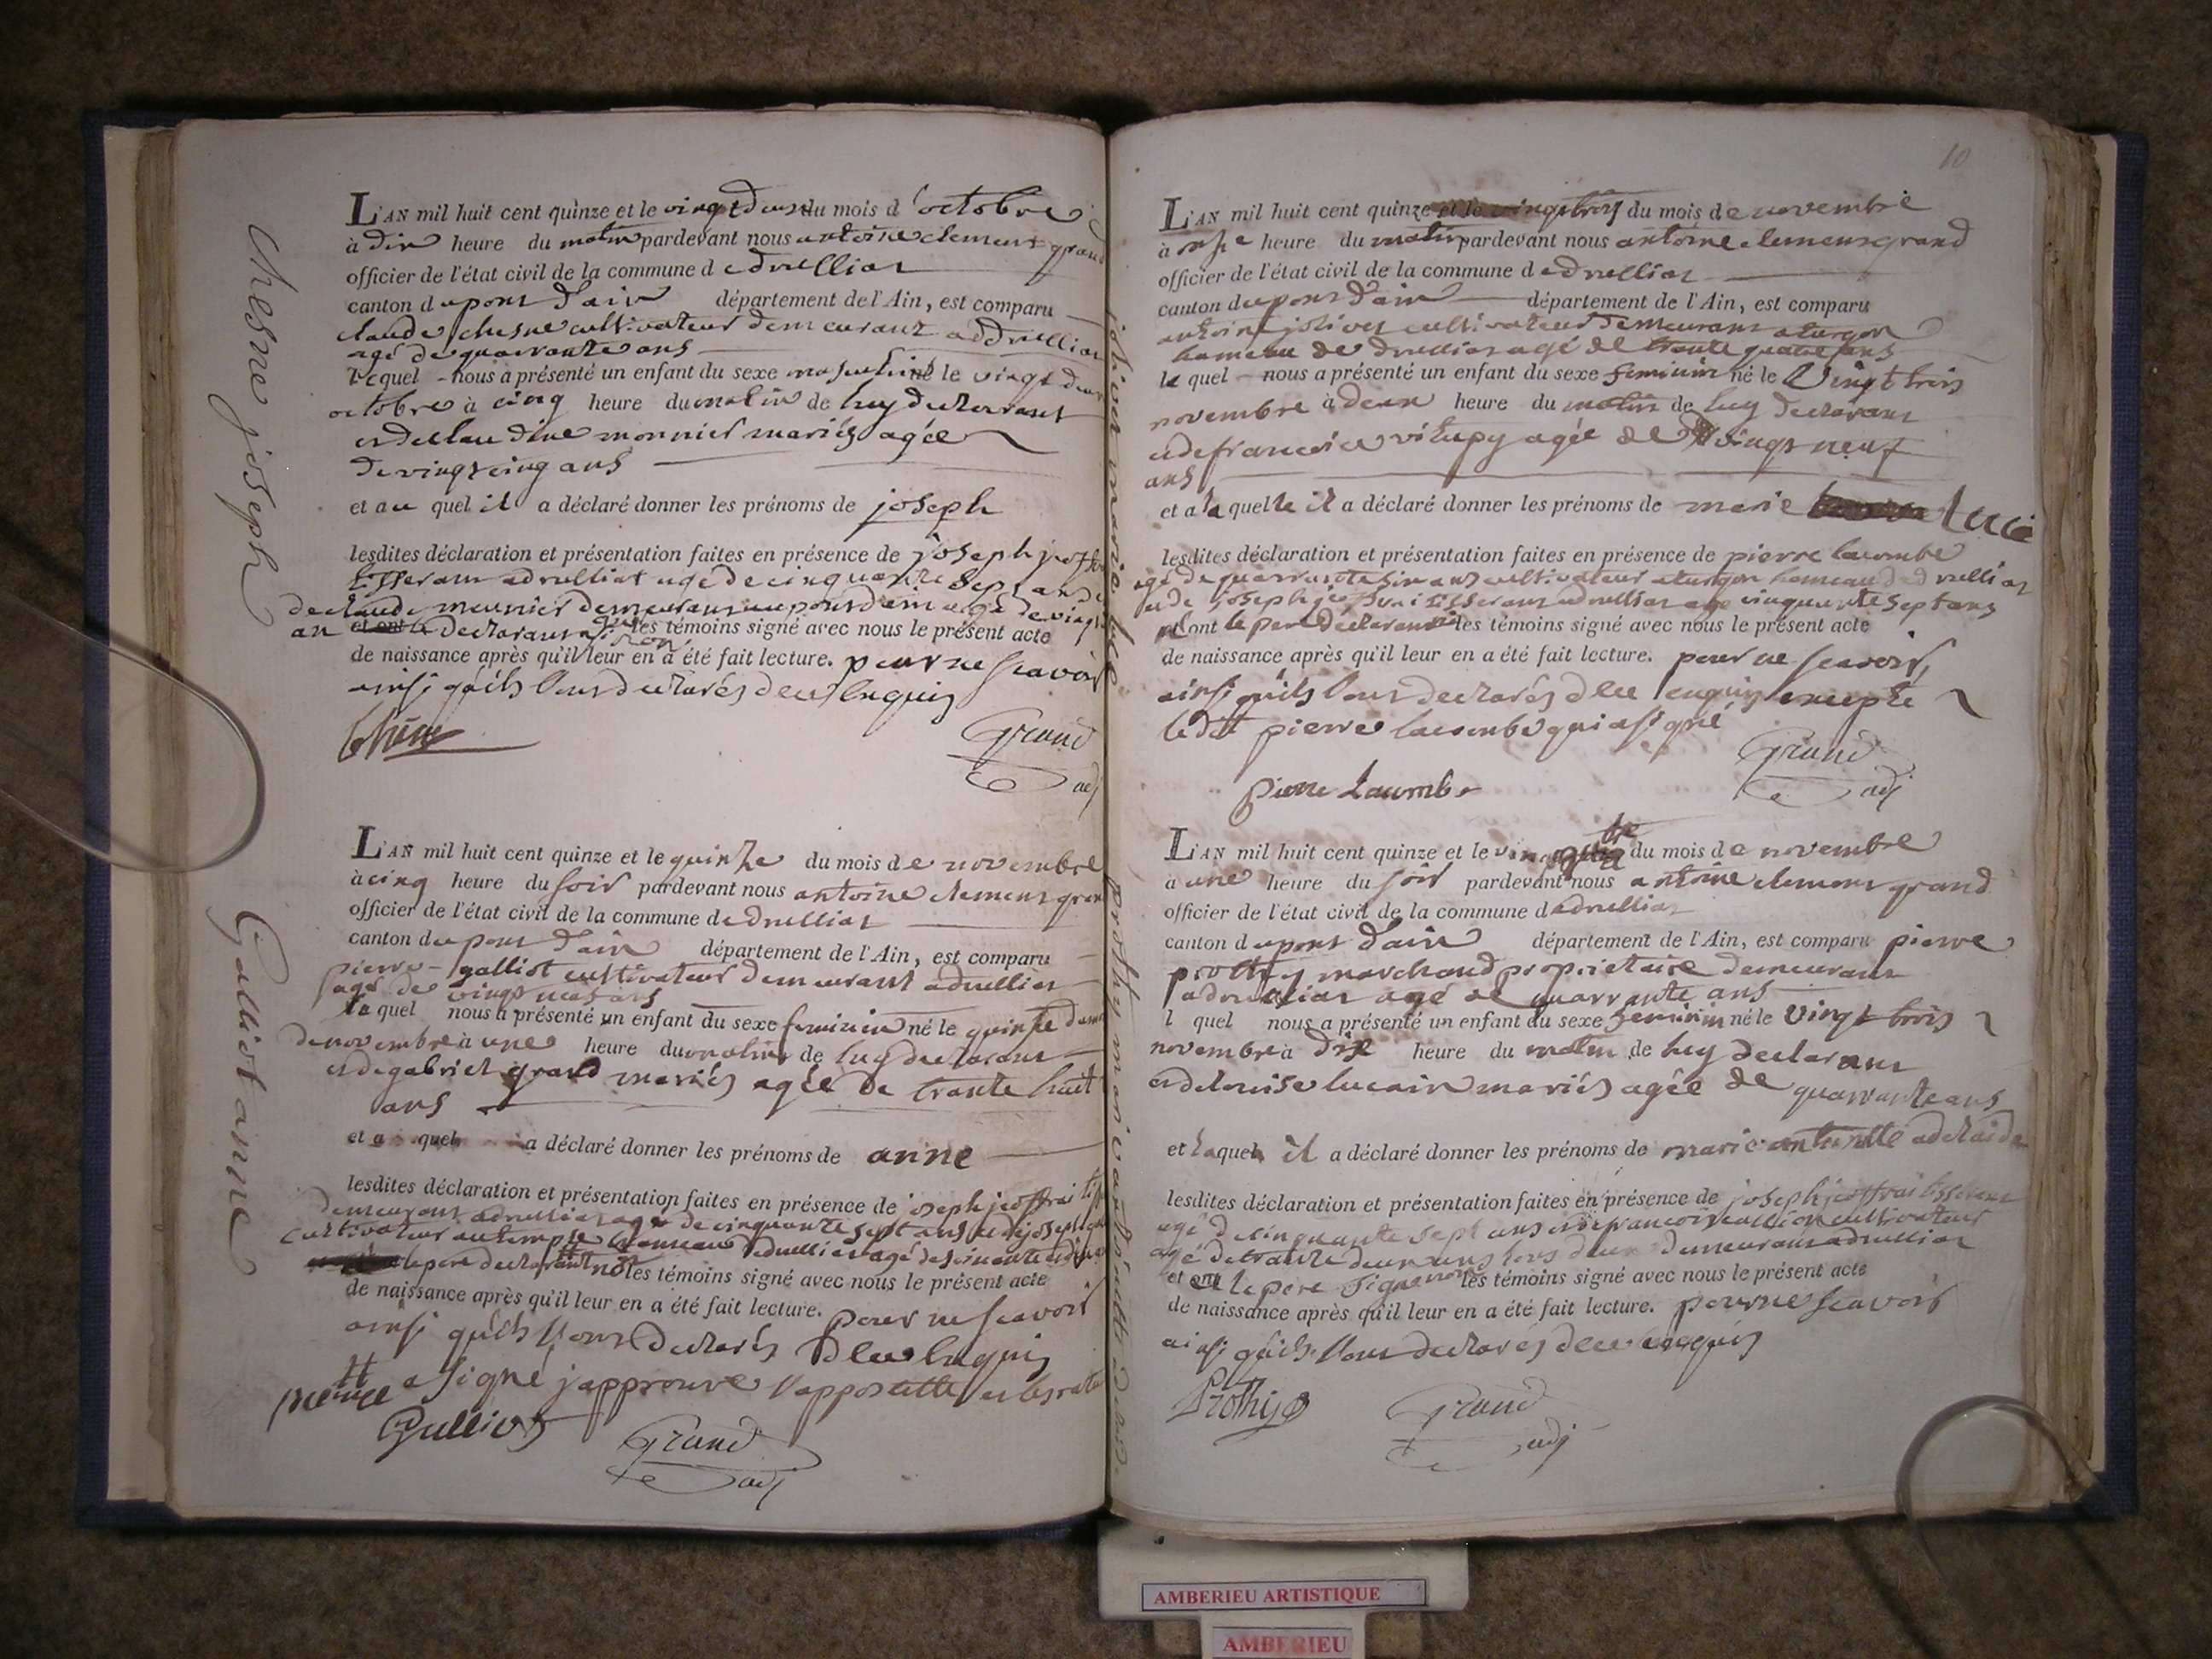 10
chesne joseph
L'AN mil huit cent quinze et le vingt deux du mois d'octobre
à dix heure du matin pardevant nous antoine clement grand
officier de l'état civil de la commune de druilliat
canton du pont d'ain département de l'Ain, est comparu
claude chesne cultivateur demeurant a druilliat
agé de quarante ans
lequel nous a présenté un enfant du sexe masculin né le vingt deux
octobre à cinq heure du matin de luy declarant
et de claudine monnier mariés agée
de vingt cinq ans
et au quel il a déclaré donner les prénoms de joseph
lesdites déclaration et présentation faites en présence de joseph
tisserant a druilliat agé de cinquante sept ans
de claude meunier demeurant au pont d'ain agé de vingt
an et ont le declarant les témoins signé avec nous le présent acte
de naissance après qu'il leur en a été fait lecture. pour ne scavoir
ainsi qu'ils l'ont declarés de ce enquis
Chêne
Grand
adj
Galliot anne
L'AN mil huit cent quinze et le quinze du mois de novembre
à cinq heure du soir pardevant nous antoine clement grand
officier de l'état civil de la commune de druilliat
canton du pont d'ain département de l'Ain, est comparu
pierre galliot cultivateur demeurant a druilliat
agé de vingt ans
le quel nous a présenté un enfant du sexe feminin né le quinze
de novembre à une heure du matin de luy declarant
et de gabriel grand mariés agée de trante huit
ans
et a quel a déclaré donner les prénoms de anne
lesdites déclaration et présentation faites en présence de joseph jeoffrai
demeurant a druilliat agé de cinquante sept ans et de joseph
cultivateur au temple hameau de druilliat agé de
le pere declarant non les témoins signé avec nous le présent acte
de naissance après qu'il leur en a été fait lecture. pour ne scavoir
ainsi qu'ils l'ont declarés de ce enquis
a signé j'approuve l'appostille
Galliot
Grand
adj
L'AN mil huit cent quinze et le vingt trois du mois de novembre
à onze heure du matin pardevant nous antoine clement grand
officier de l'état civil de la commune de druilliat
canton du pont d'ain département de l'Ain, est comparu
antoine jolivet cultivateur demeurant a turgon
hameau de druilliat agé de trante quatre ans
le quel nous a présenté un enfant du sexe feminin né le vingt trois
novembre à deux heure du matin de luy declarant
et de francoise agée de vingt neuf
ans
et a la quelle il a déclaré donner les prénoms de marie luce
lesdites déclaration et présentation faites en présence de pierre lacombe
agé de quarrante six ans cultivateur a turgon hameau de druilliat
et de joseph jeoffrai tisserant a druilliat agé cinquante sept ans
et ont le pere declarant ni les témoins signé avec nous le présent acte
de naissance après qu'il leur en a été fait lecture. pour ne scavoir
ainsi qu'ils l'ont declarés de ce enquis excepté
ledit pierre lacombe qui a signé
pierre Lacombe
Grand
adj
L'AN mil huit cent quinze et le vingt du mois de novembre
à une heure du soir pardevant nous antoine clement grand
officier de l'état civil de la commune de druilliat
canton du pont d'ain département de l'Ain, est comparu pierre
prothy marchand proprietaire demeurant
a druilliat agé de quarrante ans
l quel nous a présenté un enfant du sexe feminin né le vingt trois
novembre à dix heure du matin de luy declarant
et de louise lucain mariés agée de quarrante ans
et laquel il a déclaré donner les prénoms de marie antoinette adelaide
lesdites déclaration et présentation faites en présence de joseph jeoffrai tisserant
agé de cinquante sept ans et de francois cultivateur
agé de trante deux ans tous deux demeurant a druilliat
et ont le pere signé non les témoins signé avec nous le présent acte
de naissance après qu'il leur en a été fait lecture. pour ne scavoir
ainsi qu'ils l'ont declarés de ce enquis
Prothy
Grand
adj
AMBERIEU ARTISTIQUE
AMBERIEU